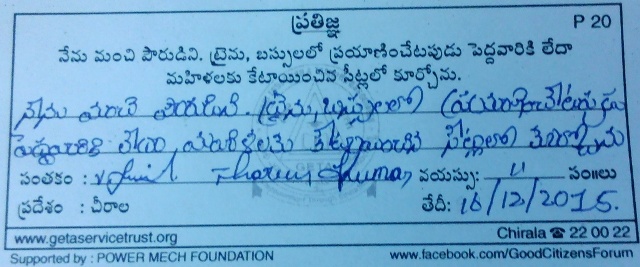 ప్రతిజ్ఞ P 20
నేను మంచి పౌరుడిని. ట్రైను, బస్సులలో ప్రయాణించేటపుడు పెద్దవారికి లేదా
మహిళలకు కేటాయించిన సీట్లలో కూర్చోను.
నేను మంచి పౌరుడిని. ట్రైను, బస్సులలో ప్రయాణించేటప్పుడు
పెద్దవారికి లేదా మహిళలకు కేటాయించిన సీట్లలో కూర్చోను
సంతకం : Kumar వయస్సు: 11 సం॥లు
ప్రదేశం : చీరాల తేదీ: 16/12/2015.
www.getaservicetrust.org Chirala ☎ 22 00 22
Supported by : POWER MECH FOUNDATION www.facebook.com/GoodCitizensForum